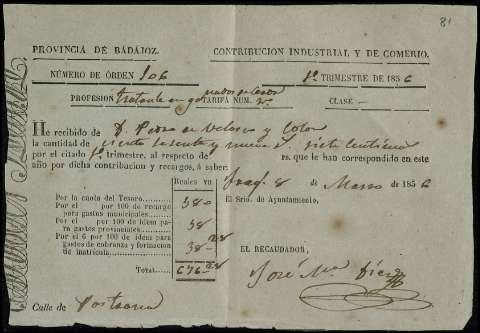 81
PROVINCIA DE BADAJOZ. CONTRIBUCION INDUSTRIAL Y DE COMERIO.
NÚMERO DE ÓRDEN 106 1er TRIMESTRE DE 1856
PROFESION tratante en ganados de cerda TARIFA NUM. 2ª CLASE
He recibido de D. Pedro de Velasco y
la cantidad de ciento sesenta y nueve rs. siete centimos
por el citado 1er trimestre, al respecto de rs. que le han correspondido en este
año por dicha contribucion y recargos, á saber:
Reales vn
Fraga 8 de Marzo de 1856
El Srio. de Ayuntamiento,
Por la cuota del Tesoro 380
Por el por 100 de recargo
para gastos municipales
Por el por 100 de idem para
gastos provinciales 38
Por el 6 por 100 de idem para
gastos de cobranza y formacion
de matrícula 28
TOTAL 676 28
EL RECAUDADOR,
José Mª Diez
Calle de